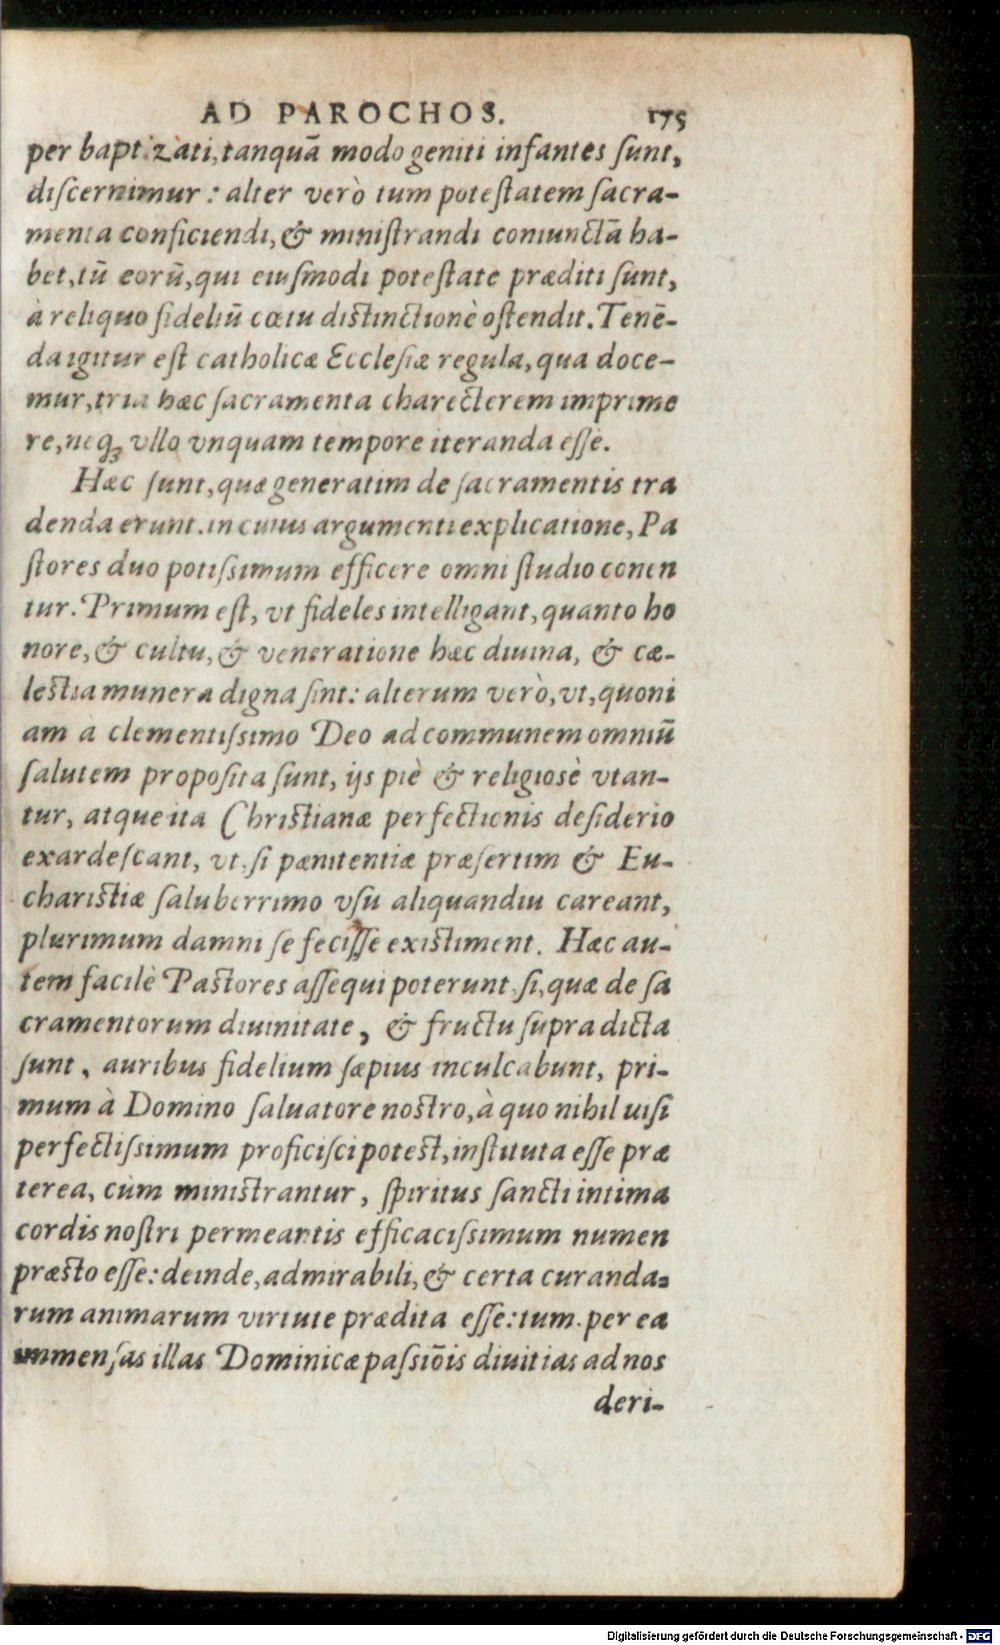 AD PAROCHOS. 175
per baptizati, tanquã modo geniti infantes ſunt,
diſcernimur: alter verò tum poteſtatem ſacra-
menta conficiendi, & miniſtrandi coniunctã ha-
bet, tũ eorũ, qui eiuſmodi poteſtate præditi ſunt,
à reliquo fideliũ cœtu distinctionè oſtendit. Tenẽ-
da igitur eſt catholicæ Eccleſiæ regula, qua doce-
mur, tria hæc ſacramenta charecterem imprime
re, neq; vllo vnquam tempore iteranda eſſe.
Hæc ſunt, quæ generatim de ſacramentis tra
denda erunt. in cuius argumenti explicatione, Pa
ſtores duo potiſsimum efficere omni ſtudio conen
tur. Primum eſt, vt fideles intelligant, quanto ho
nore, & cultu, & veneratione hæc diuina, & cæ-
lestia munera digna ſint: alterum verò, vt, quoni
am à clementiſsimo Deo ad communem omniũ
ſalutem propoſita ſunt, ijs piè & religiosè vtan-
tur, atque ita Christianæ perfectionis deſiderio
exardeſcant, vt, ſi pænitentiæ præſertim & Eu-
charistiæ ſaluberrimo vſu aliquandiu careant,
plurimum damni ſe feciſſe existiment. Hæc au-
tem facilè Pastores aſſequi poterunt, ſi, quæ de ſa
cramentorum diuinitate, & fructu ſupra dicta
ſunt, auribus fidelium ſæpius inculcabunt, pri-
mum à Domino ſaluatore nostro, à quo nihil uiſi
perfectiſsimum proficiſci potest, inſtituta eſſe præ
terea, cùm ministrantur, ſpiritus ſancti intima
cordis noſtri permeantis efficaciſsimum numen
præsto eſſe: deinde, admirabili, & certa curanda-
rum animarum virtute prædita eſſe: tum per ea
immenſas illas Dominicæ paſsiõis diuitias ad nos
deri-
Digitalisierung gefördert durch die Deutsche Forschungsgemeinschaft - DFG